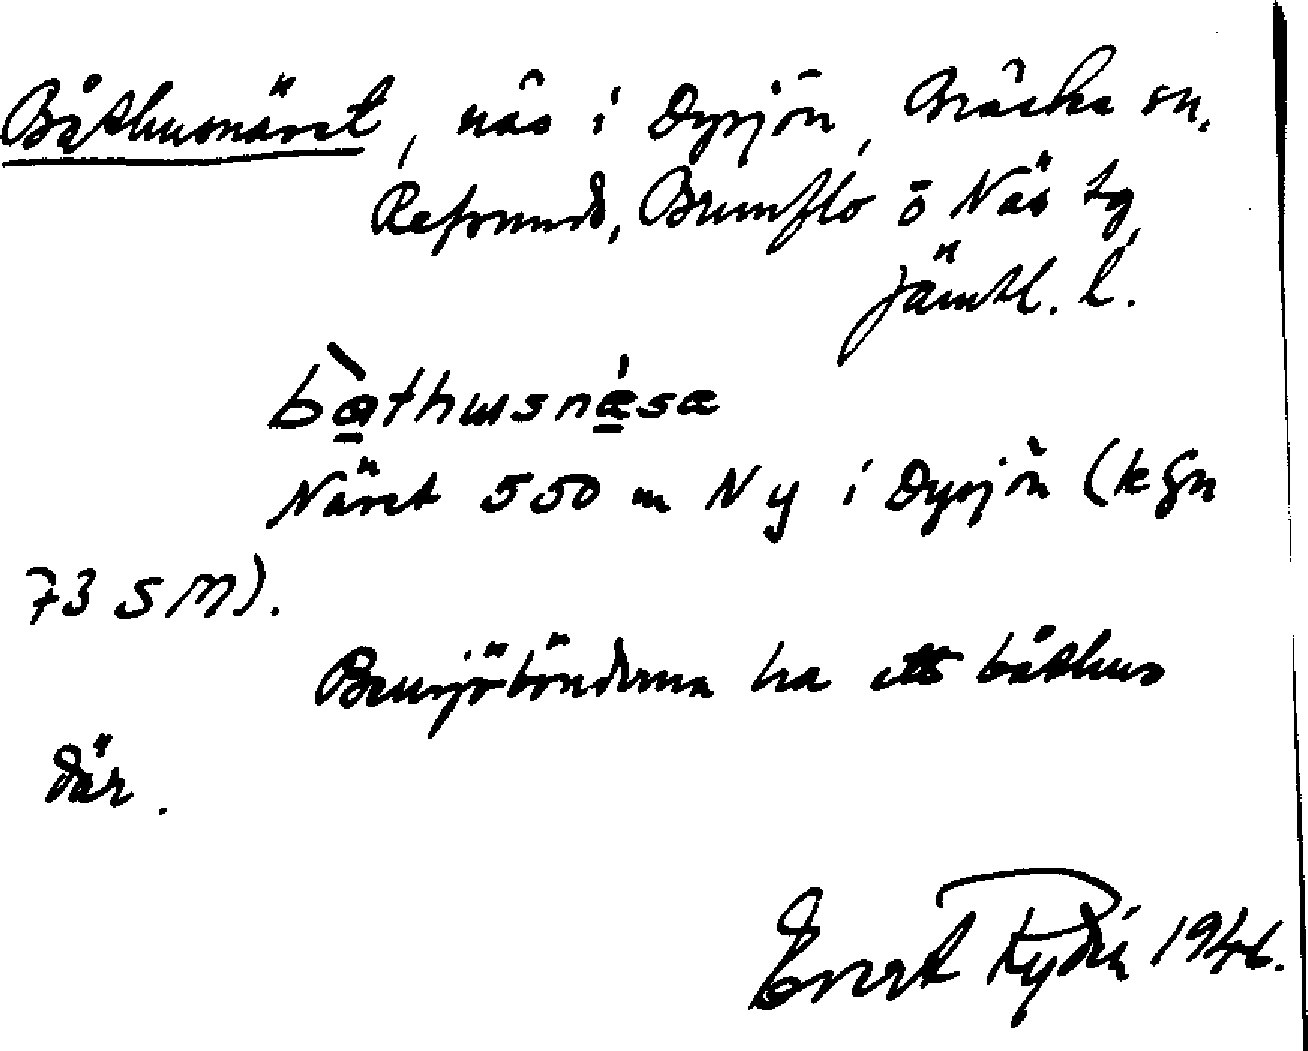 Båthusnäset, näs i Dysjön, Bräcke sn.
Refsunds, Brunflo o Näs tg
Jämtl. l.
bàthusnǽsa
Näset 550 m N y i Dysjön (k Gn
73 S M).
Bensjöbönderna ha ett båthus
där.
Evert Rydén 1946.